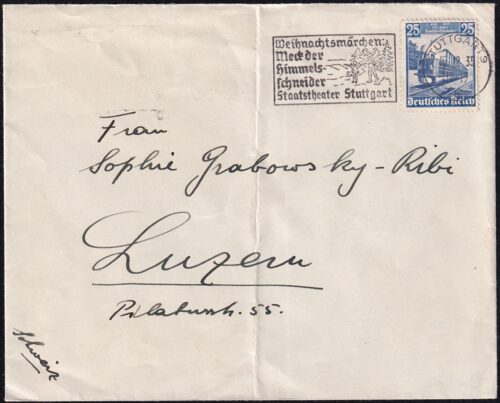 Weihnachtsmärchen:
Meck der
Himmels-
schneider
Staatstheater Stuttgart
STUTTGART 9
25 25
Deutsches Reich
Frau
Sophie Grabowsky-Ribi
Luzern
Pilatusstr. 55.
Schweiz